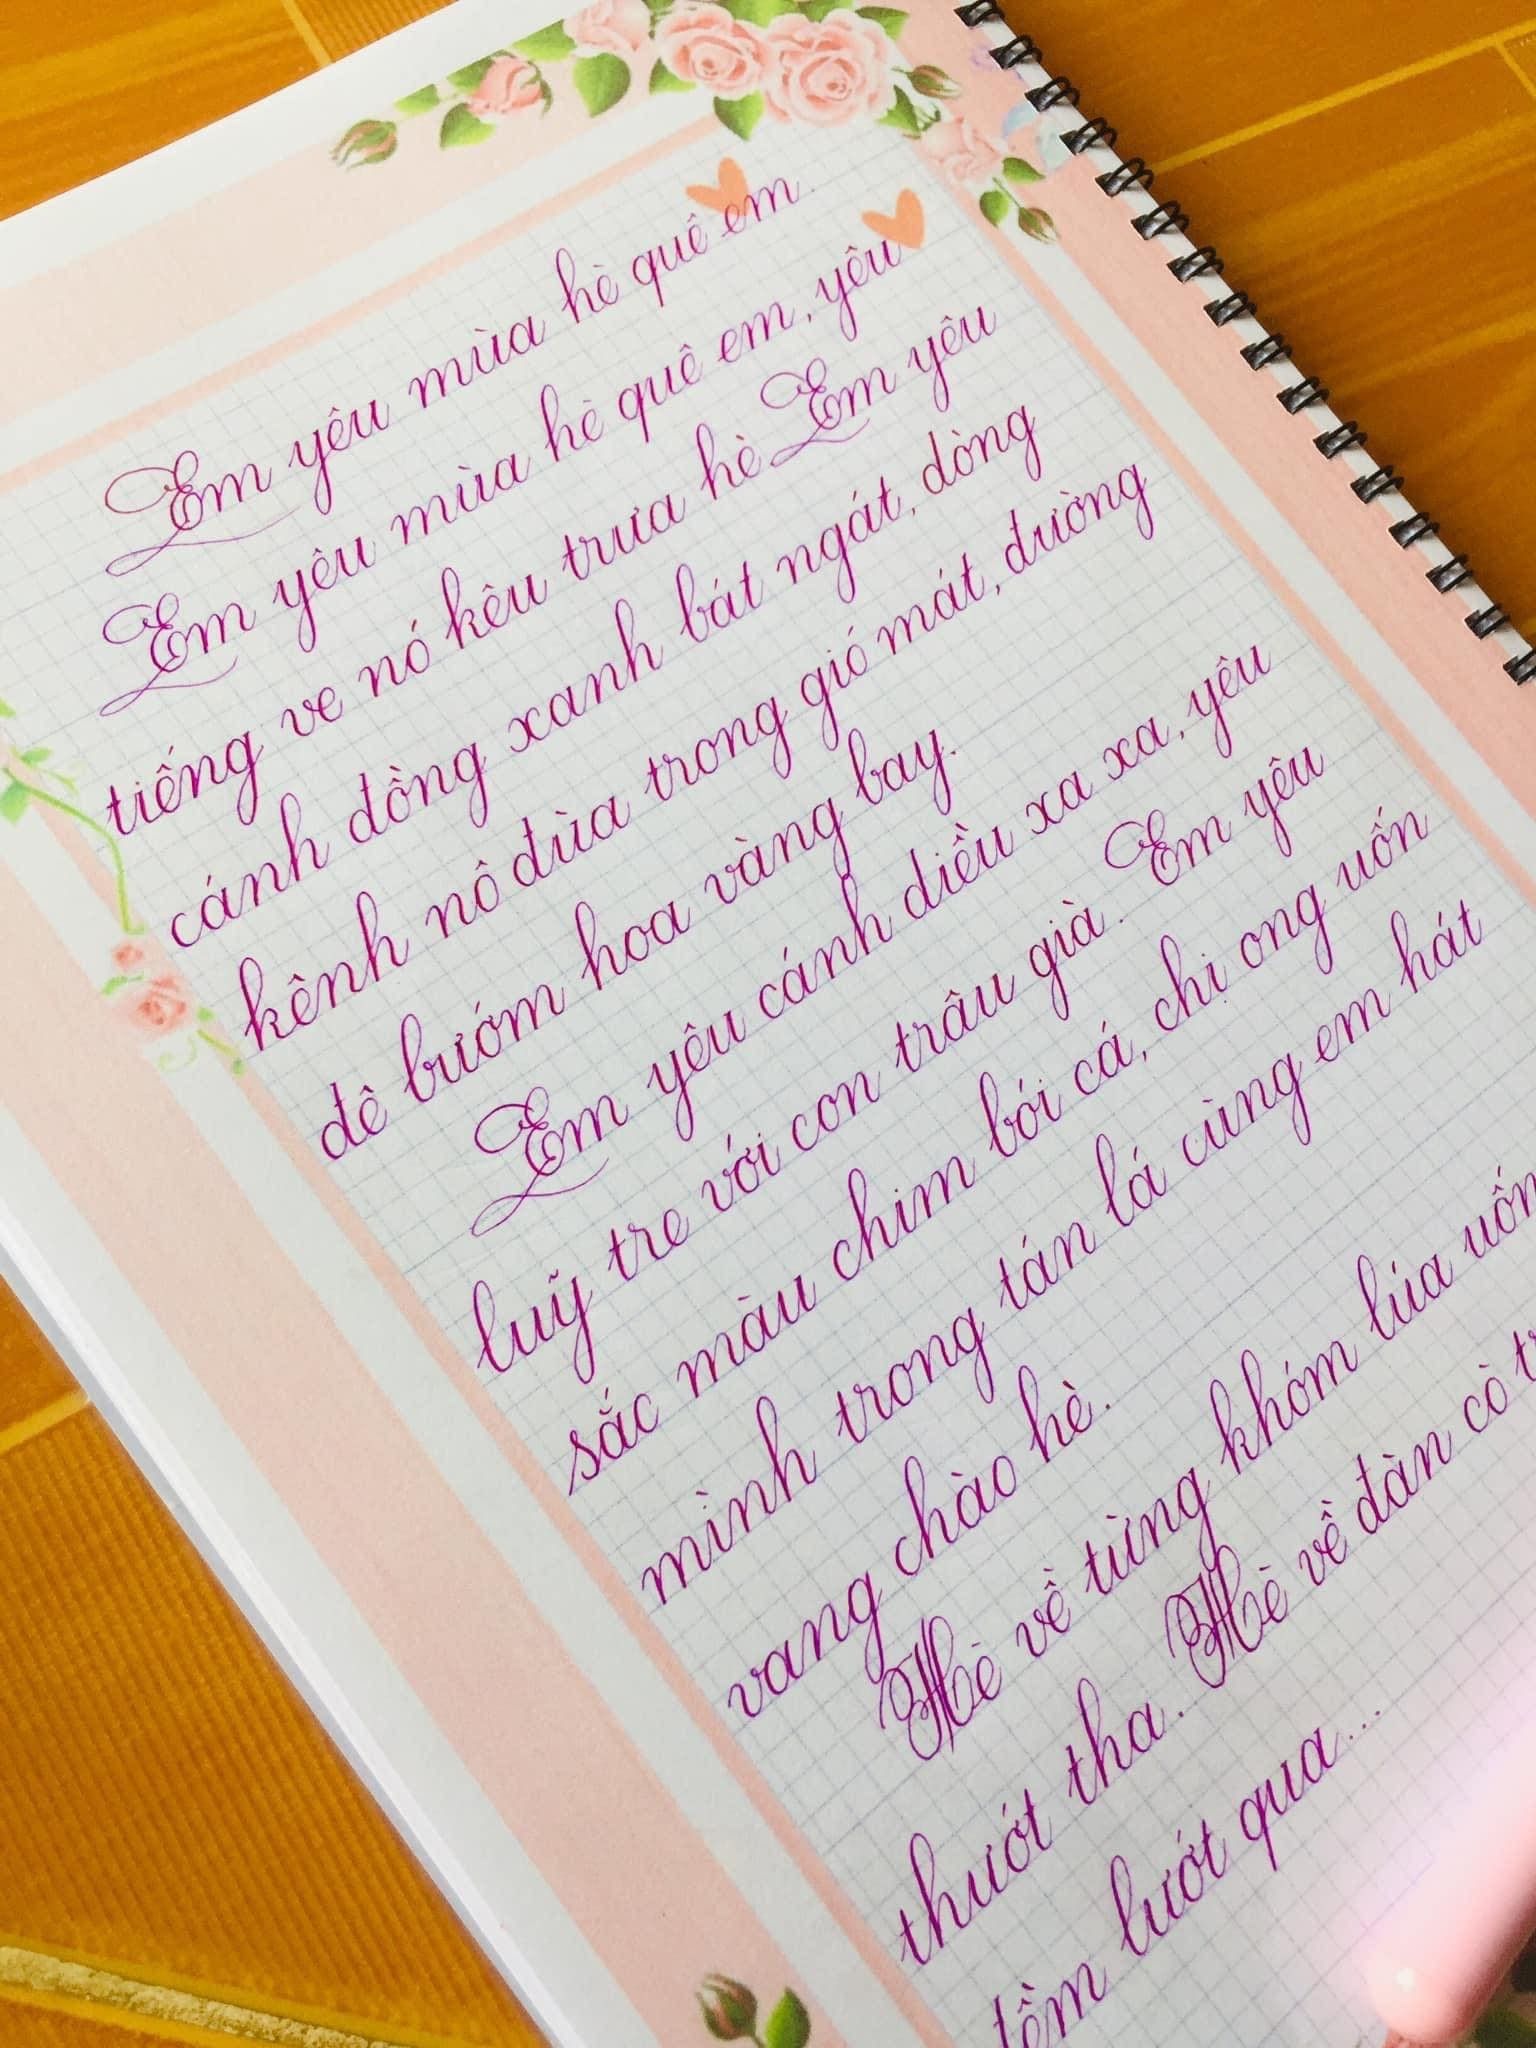 Em yêu mùa hè quê em.
Em yêu mùa hè quê em, yêu
tiếng ve nó kêu trưa hè Em yêu
cánh đồng xanh bát ngát, dòng
kênh nô đùa trong gió mát, đường
đê bướm hoa vàng bay.
Em yêu cánh diều xa xa, yêu
luỹ tre với con trâu già. Em yêu
sắc màu chim bói cá, chị ong uốn
mình trong tán lá cùng em hát
vang chào hè.
Hè về từng khóm lúa uốn
thướt tha. Hè về đàn cò
lướt qua...